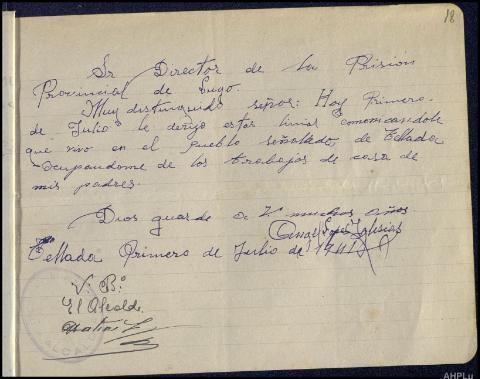 18
Sr Director de la Prisión
Provincial de Lugo.
Muy distinguido señor: Hoy Primero
de Julio le dirijo estas linias comonicandole
que vivo en el pueblo señalado de Tellada
-Ocupandome de los trabajos de casa de
mis padres.
Dios guarde a V. muchos años
Iglesias
Tellada Primero de Julio de 1941
V.º B.º
El Alcalde.
AHPLu